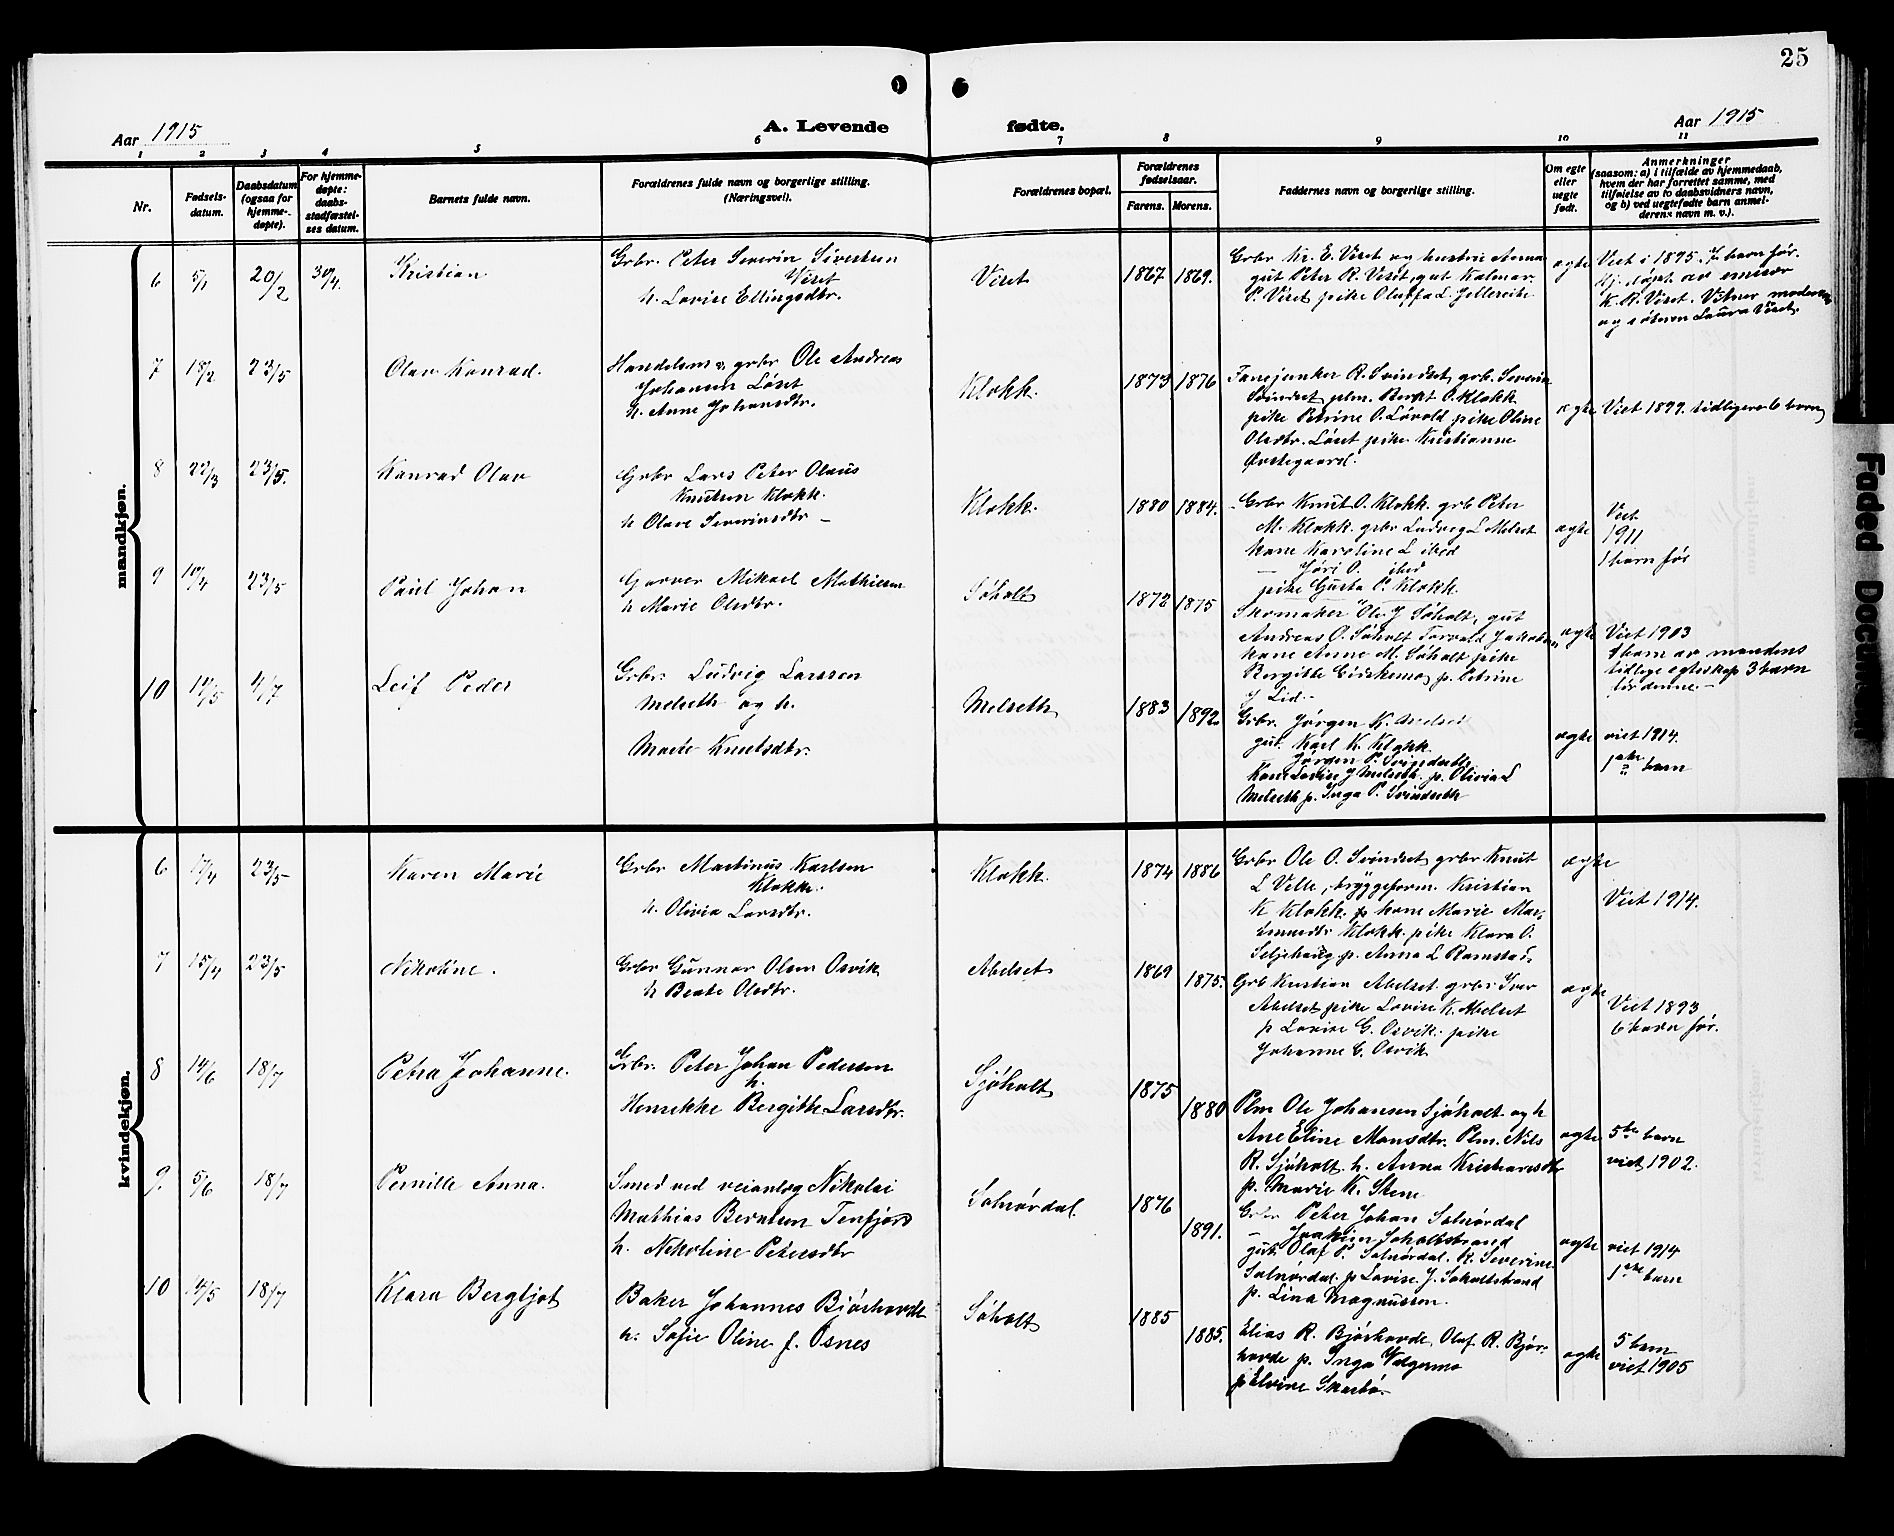 25
Aar 1915
A. Levende fødte.
Aar 1915
1 2 3 4 5 6 7 8 9 10 11
Nr.
Fødsels-
datum.
Daabsdatum
(ogsaa for
hjemme-
døpte).
For hjemme-
døpte:
daabs-
stadfæstel-
ses datum.
Barnets fulde navn.
Forældrenes fulde navn og borgerlige stilling.
(Næringsvei).
Forældrenes bopæl.
Forældrenes
fødselsaar.
Farens. Morens.
Faddernes navn og borgerlige stilling.
Om egte
eller
uegte
født.
Anmerkninger
(saasom: a) i tilfælde av hjemmedaab,
hvem der har forrettet samme, med
tilføielse av to daabsvidners navn,
og b) ved uegtefødte barn anmel-
derens navn m. v.).
mandkjøn.
6 5/1 20/2 30/4.
Kristian
Grbr. Peter Severin Sivertsen
Viset
h. Lovise Ellingsdtr.
Viset
1867 1869.
Grbr Kr. E. Viset og hustrie Anna
gut Peter R. Viset, gut Kalmar
P. Viset pike Oluffa L. Jelleseite
ægte
Viet i 1895. 7 barn før.
Hj. døpt av emisær
K. R. Viset. Vitner moderen
og søsteren Laura Viset.
7 18/2 23/5
Olav Konrad.
Handelsm. og grbr Ole Andreas
Johansen Løset
h. Anne Johansdtr.
Klokk.
1873 1876
Fanejunker R. Svindset, grb. Severin
Svindset, plm. Bernt O. Klokk
pike Petrine O. Løvold pike Oline
Olsdtr. Løset pike Kristianne
Ørstegaard.
ægte
Viet 1899. tidligere 6 barn
8 22/3 23/5.
Konrad Olav
Grbr Lars Peter Olaus
Knutsen Klokk.
h Olave Severinsdtr –
Klokk.
1880 1884.
Grbr Knut O. Klokk. grb Peter
M. Klokk. grbr Ludvig L Melset
kone Karoline L ibid
– Jøri O. ibid
pike Gusta P. Klokk.
ægte
Viet
1911
1 barn før
9 10/4 23/5
Paul Johan
Garver Mikael Mathiesen
h Marie Olsdtr.
Søholt
1872 1875
Skomaker Ole J Søholt, gut
Andreas O. Søholt Torvald Jakobsen
kone Anne M. Søholt pike
Bergitte Giskemo, p. Petrine
J Lid.
ægte
Viet 1903
1 barn av mandens
tidlige egteskap 3 barn
før denne. –
10 14/5 4/7
Leif Peder
Grbr. Ludvig Larssen
Melseth og h.
Marte Knutsdtr.
Melseth
1883 1892
Grbr. Jørgen K.
gut. Karl K. Klokk.
Jørgen P. Svindseth
Kone Lovise J Melseth. p. Olivia L
Melseth p. Inga P. Svindseth
ægte
viet 1914.
1ste barn
kvindekjøn.
6 17/4 23/5
Karen Marie
Grbr Martinus Karlsen
Klokk.
h. Olivia Larsdtr.
Klokk.
1874 1886
Grbr Ole O. Svindset, grbr Knut
L Velle, bryggeform. Kristian
K Klokk. kone Marie Ras-
musdtr Klokk. pike Klara O.
Seljehaug p. Anna L Ramstad.
ægte
Viet 1914.
7 15/4 23/5
Nikoline.
Grbr Gunnar Olsen Osvik
h Beate Olsdtr.
Abelset
1869 1875.
Grb Kristian Abelset. grbr Iver
Abelset pike Lovise K. Abelset
p Lovise G. Osvik. pike
Johanne G. Osvik
ægte
Viet 1893
6 barn før.
8 14/6 18/7
Petra Johanne.
Grbr. Peter Johan Pedersen
h.
Henrikke Bergitte Larsdtr.
Sjøholt
1875 1880
Plm Ole Johansen Sjøholt og h
Ane Eline Monsdtr. Plm. Nils
R. Sjøholt. h. Anna Kristiansdtr
p. Marie K. Stene
ægte
5te barn
viet 1902.
9. 5/6 18/7
Pernille Anna.
Smed ved veianlæg Nikolai
Mathias Berntsen Tenfjord
h. Nikoline Petersdtr
Solnørdal.
1876 1891.
Grbr Peter Johan Solnørdal
– Joakim Søholtstrand
gut Olaf P. Solnørdal. K. Severine
Solnørdal. p Lovise. J. Søholtstrand
p. Lina Magnussen.
ægte
viet 1914
1ste barn
10 14/5 18/7
Klara Bergljot
Baker Johannes Bjørhovde
h. Sofie Oline f. Osnes
Søholt
1885 1885.
Elias R. Bjørhovde, Olaf R. Bjør-
hovde p. Inga Valgermo
p Elvine Skarbø.
ægte
5 barn
viet 1905
Faded Document